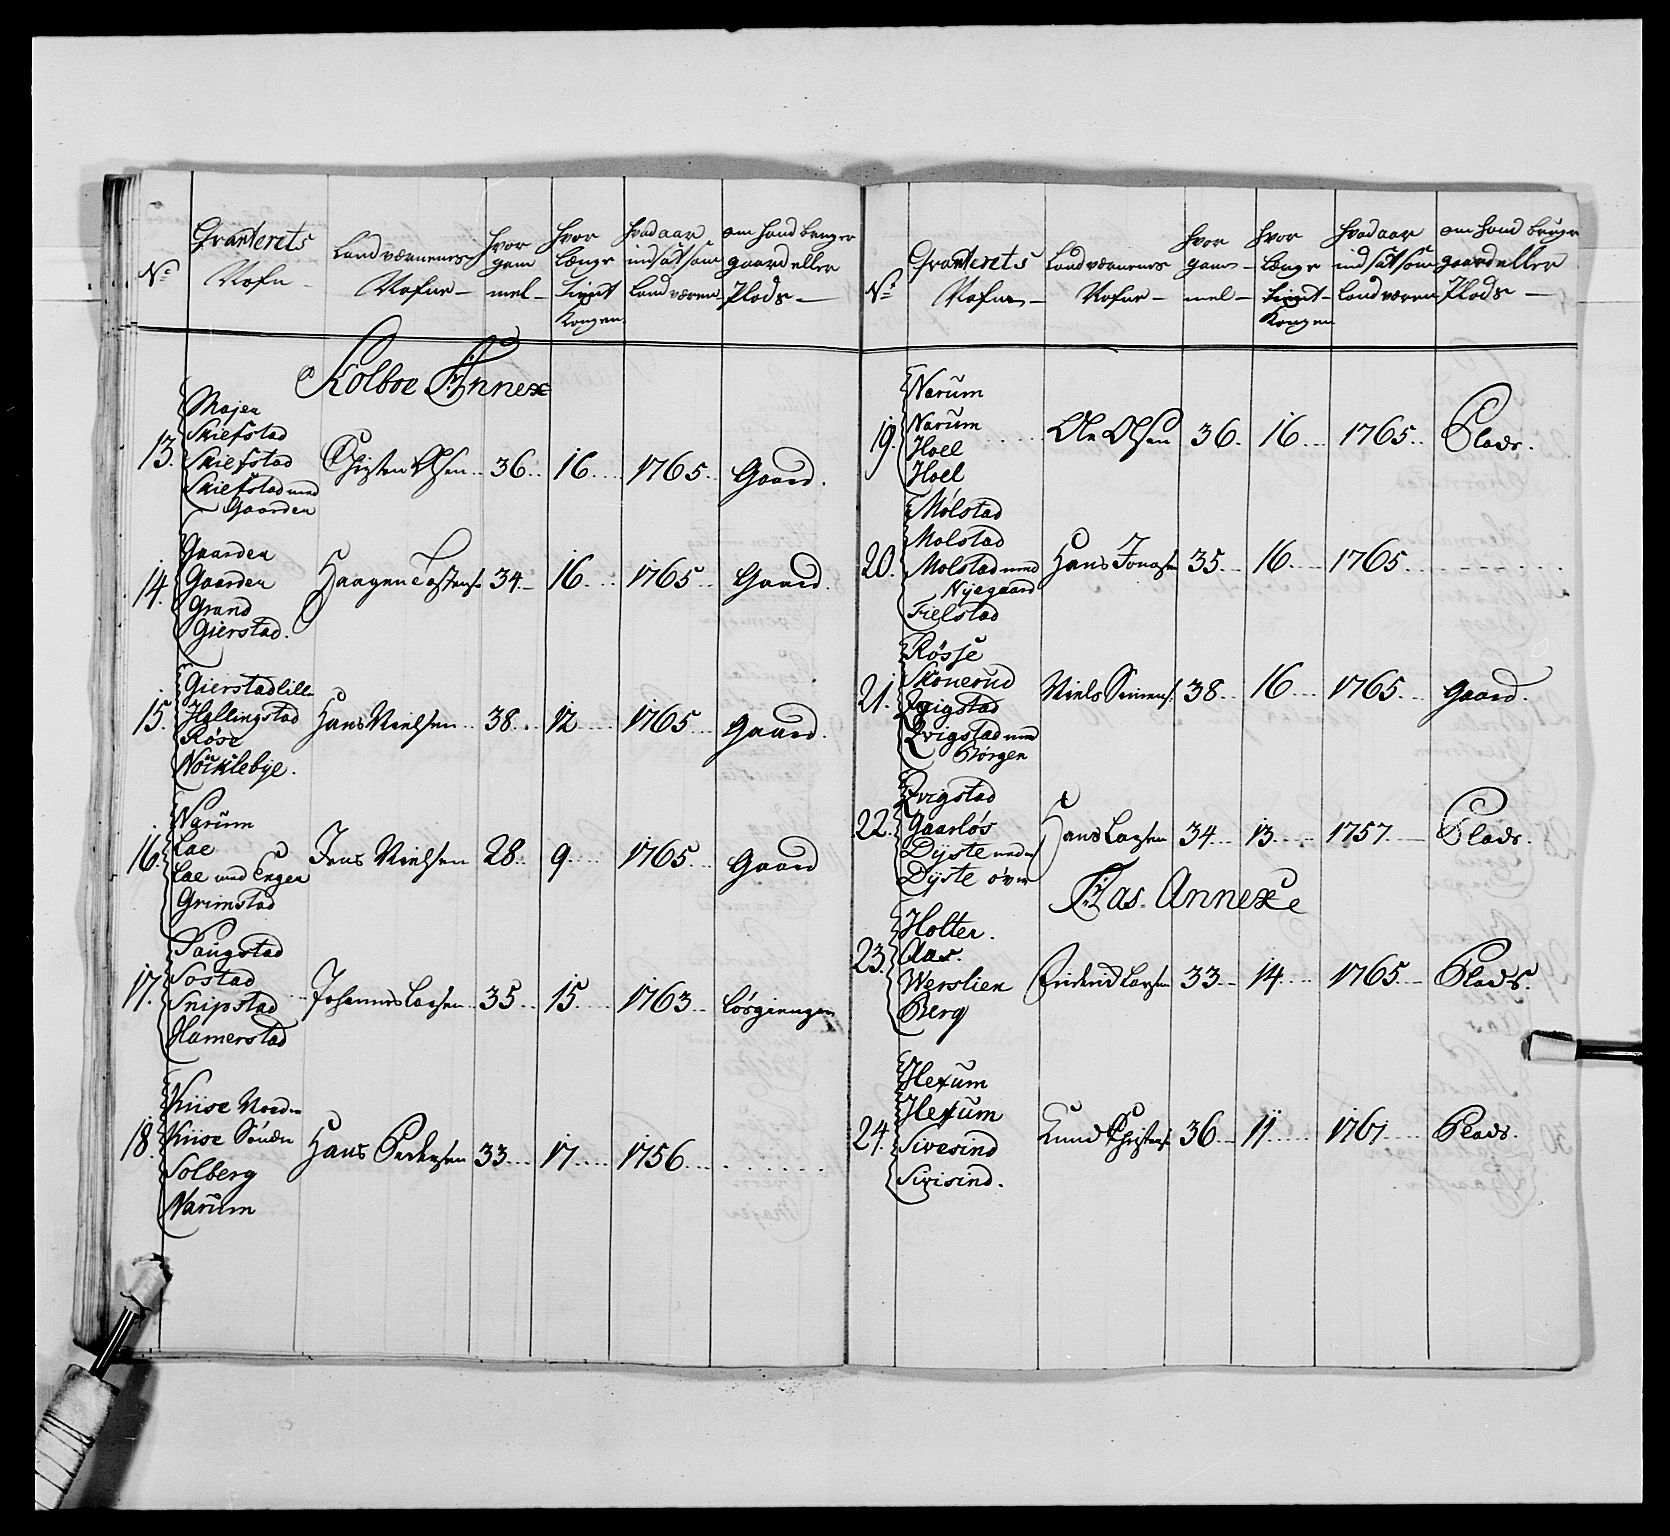 No
Qvarterets
Nafn
Landværnenes
Nafne
hvor
gam
mel
hvor
længe
tient
Kongen
hvad aar
indsat som
Landværn
om hand bruger
gaard eller
Plads
Kolboe Annex
13. Majen
Skiefstad
Skiefstad
Skiefstad med
Gaarden
Christen Olsen 36 16 1765 Gaard.
14. Gaarden
Gaarden
Grand
Gierstad.
Haagen 34 16 1765 Gaard.
15. Gierstadlille
Hallingstad
Røse
Nöcklebÿe.
Hans Nielsen 38 12 1765 Gaard.
16. Narum
Lae
Lae med Engen
Grimstad
Jens Nielsen 28 9 1765 Gaard
17. Paugstad
Sostad
Snipstad
Hamerstad
Johannes Larsen 35 15 1763
18. Kiise Norden
Kiise Sönden
Solberg
Narum
Hans Pedersen 33 17 1756
No
Qvarterets
Nafne
Landværnenes
Nafne
hvor
gam
mel
hvor
længe
tient
Kongen
hvad aar
indsat som
Landværn
om hand bruger
gaard eller
Plads
19. Narum
Narum
Hoel
Hoel
Ole Olsen 36. 16 1765 Plads.
20. Mølstad
Malstad
Molstad med
Nÿegaard
Fielstad
Hans Jonas 35 16 1765
21. Røsse
Skonerud
Qvigstad
Qvigstad med
Börgen
Niels 38 16 1765 Gaard.
22. Qvigstad
Gaarløs
Dÿste neder
Dÿste øver
Hans Larsen 34 13 1757 Plads.
Aas Annexe
23. Holter.
Aas.
Werslien
Berg
Larsen 33 14 1765 Plads.
24. Hexum
Hexum
Sivesind
Sivisind.
Knud Christens 36 11 1761 Plads.